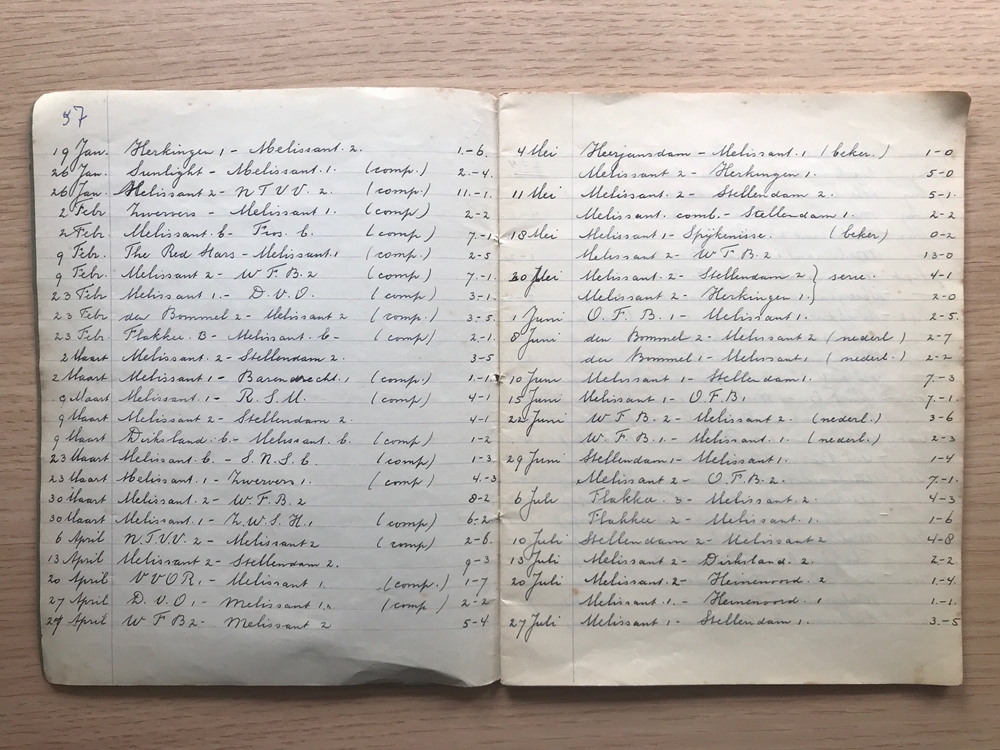 57
19 Jan. Herkingen 1 - Melissant. 2. 1.-6.
26 Jan. Sunlight - Melissant. 1. (comp.) 2.-4.
26 Jan. Melissant 2 - N T V V. 2. (comp.) 11.-1.
2 Febr. Zwervers - Melissant 1. (comp) 2-2
2 Febr. Melissant. b - Fios. b. (comp) 7-1.
9 Febr. The Red Stars - Melissant 1 (comp.) 2-5
9 Febr. Melissant 2 - W F. B. 2 (comp.) 7.-1.
23 Febr Melissant 1. - D. V. O. (comp) 3-1.
23 Febr den Bommel 2 - Melissant 2 (comp.) 3-5.
23 Febr. Flakkee. B - Melissant. b - (comp) 2.-1.
2 Maart Melissant. 2 - Stellendam 2. 3-5
2 Maart Melissant 1 - Barendrecht. 1 (comp.) 1.-1.
9 Maart Melissant. 1 - R. S. M. (comp) 4-1
9 Maart Melissant 2 - Stellendam 2. 4-1.
9 Maart Dirksland. b. - Meliss ant. b. (comp) 1-2
23 Maart Melissant. b. - S. N. S. b. (comp) 1-3.
23 Maart Melissant. 1 - Zwervers 1. (comp) 4.-3
30 Maart Melissant. 2 - W F. B. 2 8-2.
30 Maart Melissant. 1 - Z. W. S. H. 1 (comp) 6-2
6 April N. T. V. V. 2 - Melissant 2 (comp) 2-6.
13 April Melissant 2 - Stellendam 2. 9-3
20 April V V O R. 1 - Melissant 1. (comp.) 1-7
27 April D. V. O. 1 - Melissant 1. (comp) 2-2
27 April W F B 2 - Melissant 2 5-4
4 Mei Heerjansdam - Melissant. 1 (beker.) 1-0
Melissant 2 - Herkingen 1. 5-0
11 Mei Melissant. 2 - Stellendam 2. 5-1.
Melissant. comb. - Stellendam 1. 2-2
18 Mei Melissant 1 - Spijkenisse. (beker) 0-2
Melissant 2 - W F B. 2. 13-0
30 Mei Melissant. 2 - Stellendam 2 } serie. 4-1
Melissant 2 - Herkingen 1. } 2-0
1 Juni O. F. B. 1 - Melissant 1. 2-5.
8 Juni den Bommel 2 - Melissant 2 (nederl) 2-7
den Bommel 1 - Melissant 1 (nederl.) 2-2
10 Juni Melissant 1 - Stellendam 1. 7.-3
15 Juni Melissant 1 - O F. B. 1 7.-1.
22 Juni W F B. 2 - Melissant 2. (nederl.) 3-6
W. F. B. 1. - Melissant. 1. (nederl.) 2-3
29 Juni Stellendam 1 - Melissant 1. 1-4
Melissant 2 - O F. B. 2. 7.-1.
6 Juli Flakkee. 3 - Melissant 2. 4-3
Flakkee 2 - Melissant. 1. 1-6
10 Juli Stellendam 2 - Melissant 2 4-8
13 Juli Melissant 2 - Dirksland. 2. 2-2
20 Juli Melissant. 2 - Heinenoord. 2 1-4.
Melissant. 1. - Heinenoord. 1 1.-1.
27 Juli Melissant 1 - Stellendam 1. 3.-5